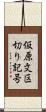 仮原文区
切り記号